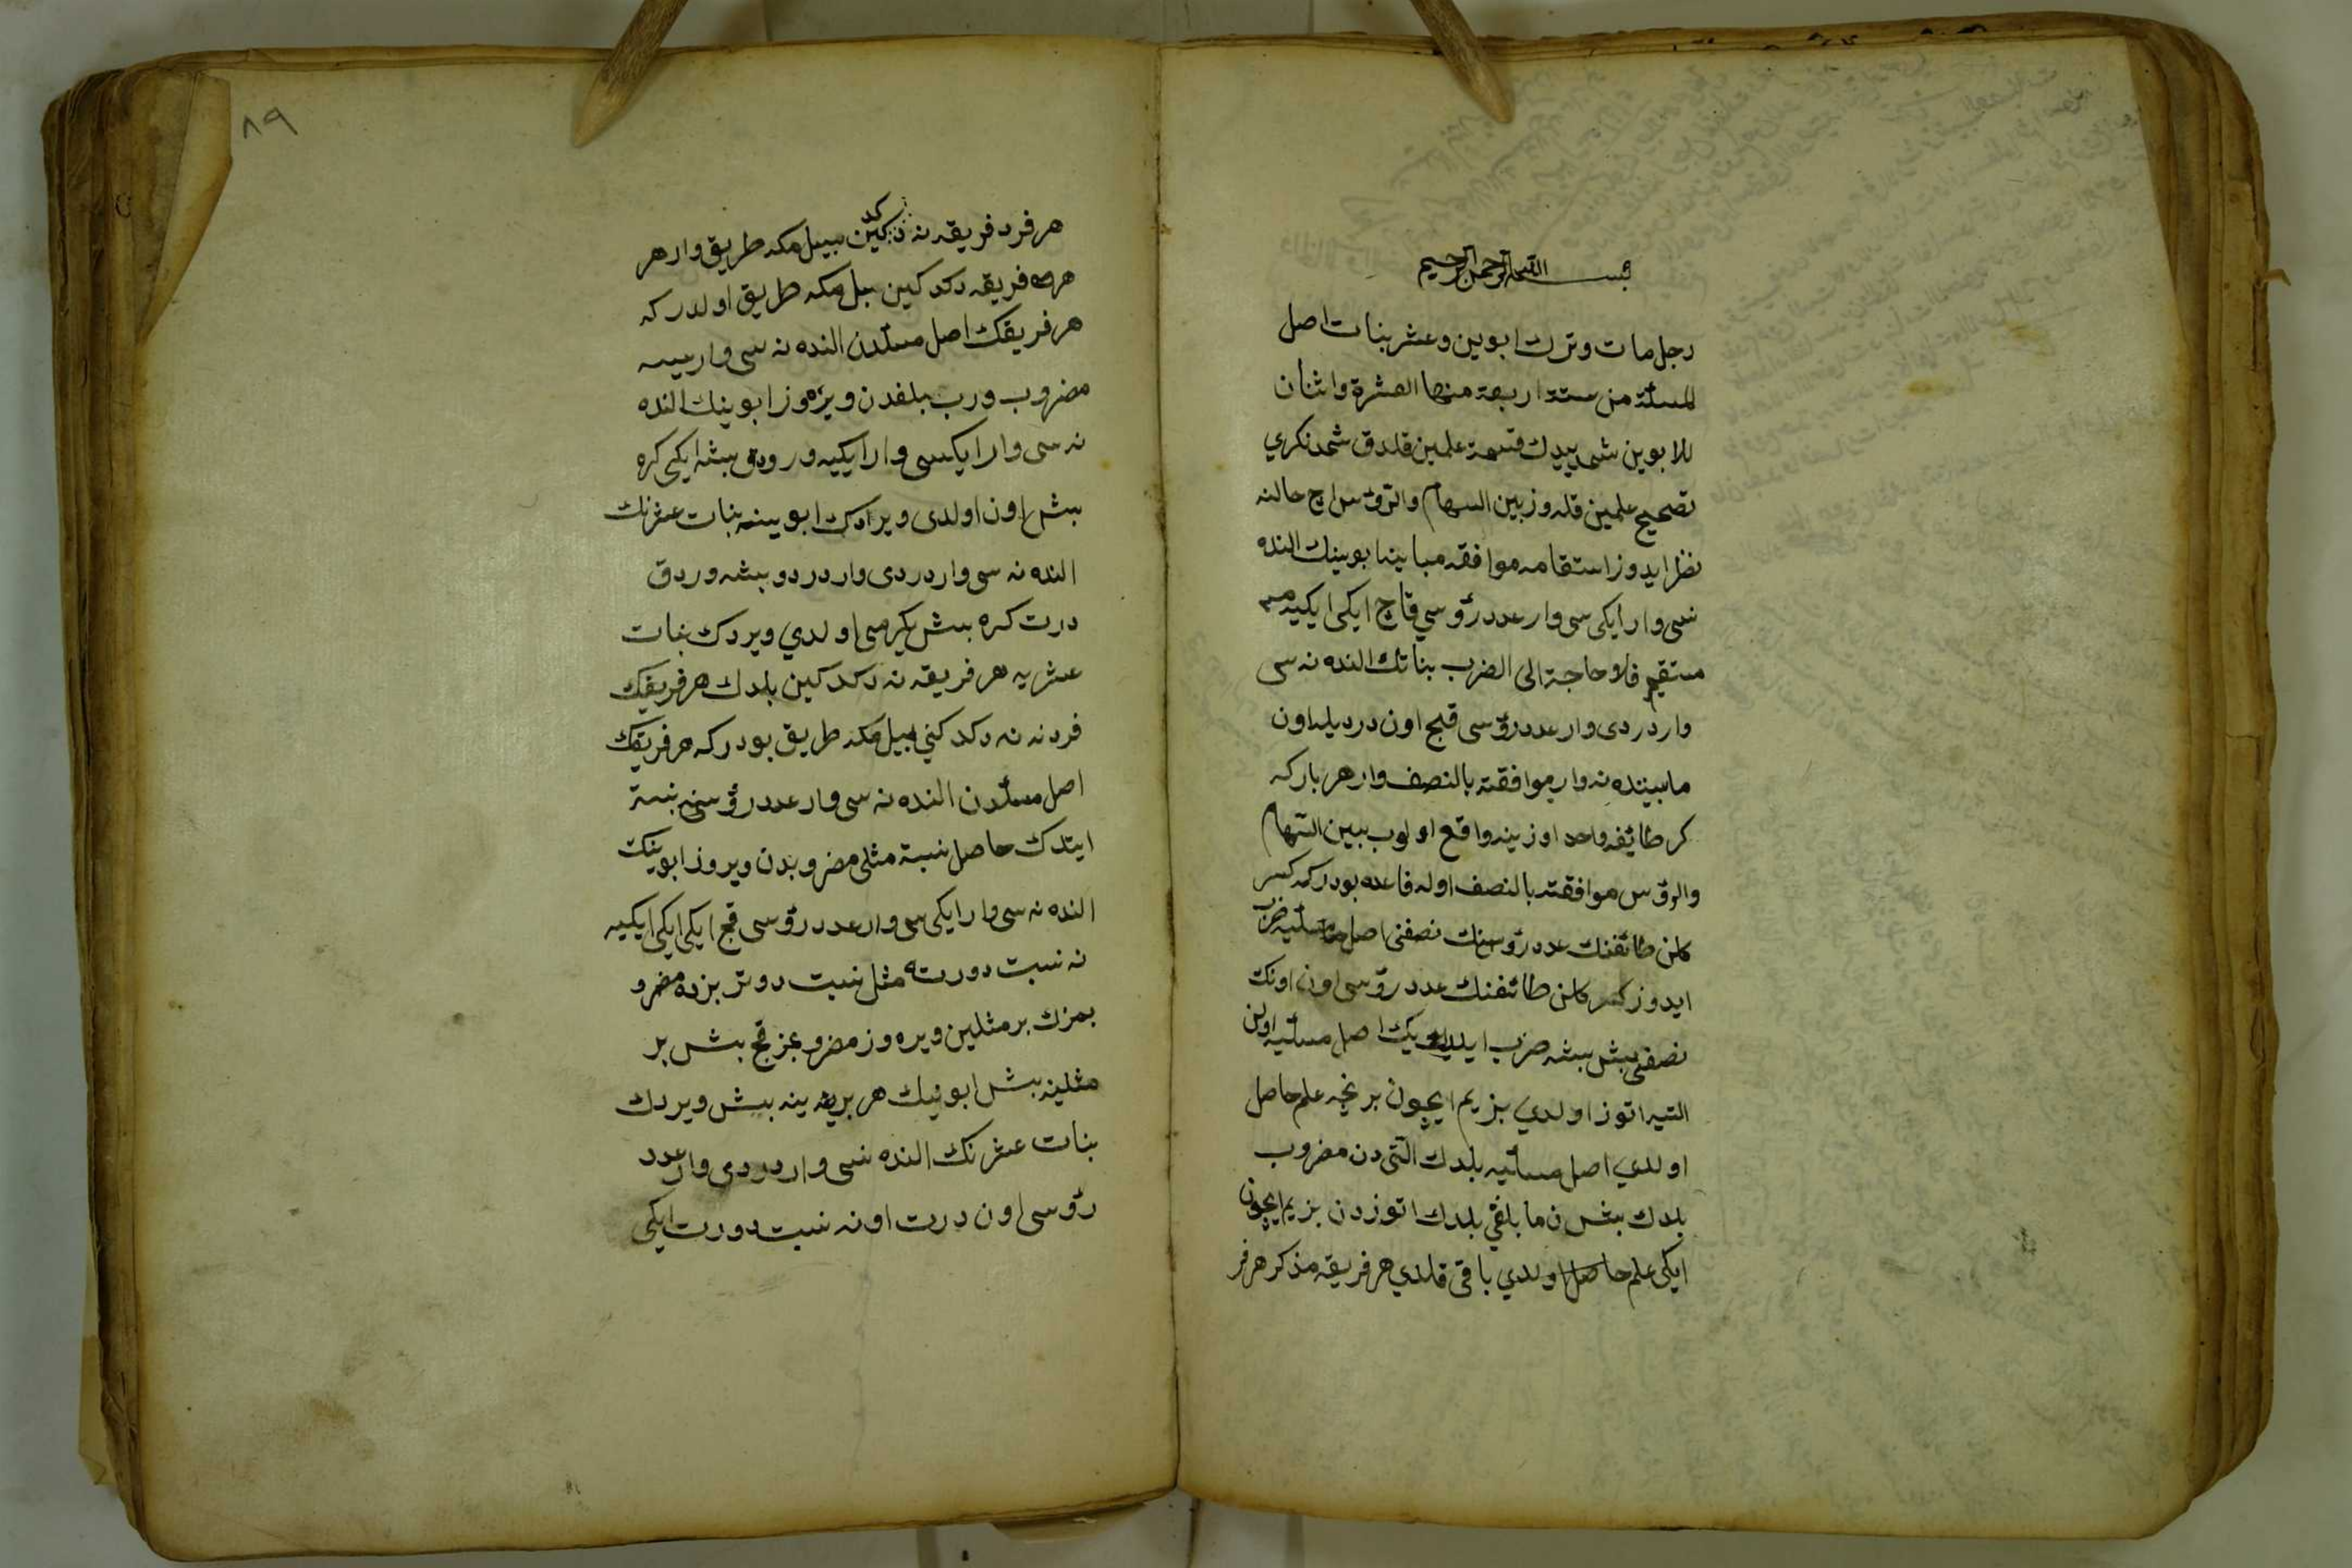 بسم الله الرحمن الرحيم
رجل مات وترك ابوين وعشر بنات اصل
المسئلة من ستة اربعة منها العشرة واثنان
للابوين شمديدك قسمة علمين قلدق شمدنكري
تصحيح علمين قلدوز بين السهام والرؤس اج حالنه
نظر ايدوز استقامه موافقه مباينه ابوينك النده
نسى وار ايكى سى وار عدد رؤسي قاج ايكى ايكيه
مستقيم فلا حاجة الى الضرب بناتك النده نه سى
وار دردى وار عدد رؤسى قج اون درديله اون
مابينده نه وار موافقة بالنصف وار هر باركه
كر طائفه واحد اوزينه واقع اولوب بين السهام
والرؤس موافقته بالنصف اوله قاعده بودركه كسر
كلن طائفنك عدد رؤسنك نصفنى اصل مسئليه ضرب
ايدوز كسر كلن طائفنك عدد رؤسى اون اونك
نصفى بش بشه ضرب ايلدك اصل مسئليه اولن
التيه اتوز اولدي بزيم ايچون بر نجه علم حاصل
اولدي اصل مسئليه بلدك التى دن مضروب
بلدك بش دن ما بلغي بلدك اتوزدن بزيم ايچون
ايكى علم حاصل اولدي باقى قلدي هر فريقه مذكر هر فر
٨٩
هر فرد فريقه نه دكدكين بيلمكه طريق وار هر
هر فريقه دكدكين بلمكه طريق اولدركه
هر فريقك اصل مسئلدن النده نه سى وارسه
مضروب ورب بلغدن ويره وز ابوينك النده
نه سى وار ايكسى وار ايكيه وردق بشه ايكى كره
بش اون اولدى ويردك ابوينه بنات عشرنك
النده نه سى وار دردى وار دردو بشه وردق
درت كره بش يكرمى اولدي ويردك بنات
عشريه هر فريقه نه دكدكين بلدك هر فريقك
فردنه نه دكدكني بيلمكه طريق بودركه هر فريقك
اصل مسئلدن النده نه سى وار عدد رؤسنه نسبة
ايتدك حاصل نسبة مثلى مضروبدن ويروز ابوينك
النده نه سى وار ايكى سى وار عدد رؤسى قج ايكى ايكى ايكيه
نه نسبت دورته مثل نسبت دوتر بزده مضرو
بمزك بر مثلين ويره وز مضروبمز قج بش بر
مثلينه بش ابوينك هر برينه بش ويردك
بنات عشرنك النده نسى وار دردى وار عدد
رؤسى اون درت اونه نسبت دورت ايكى